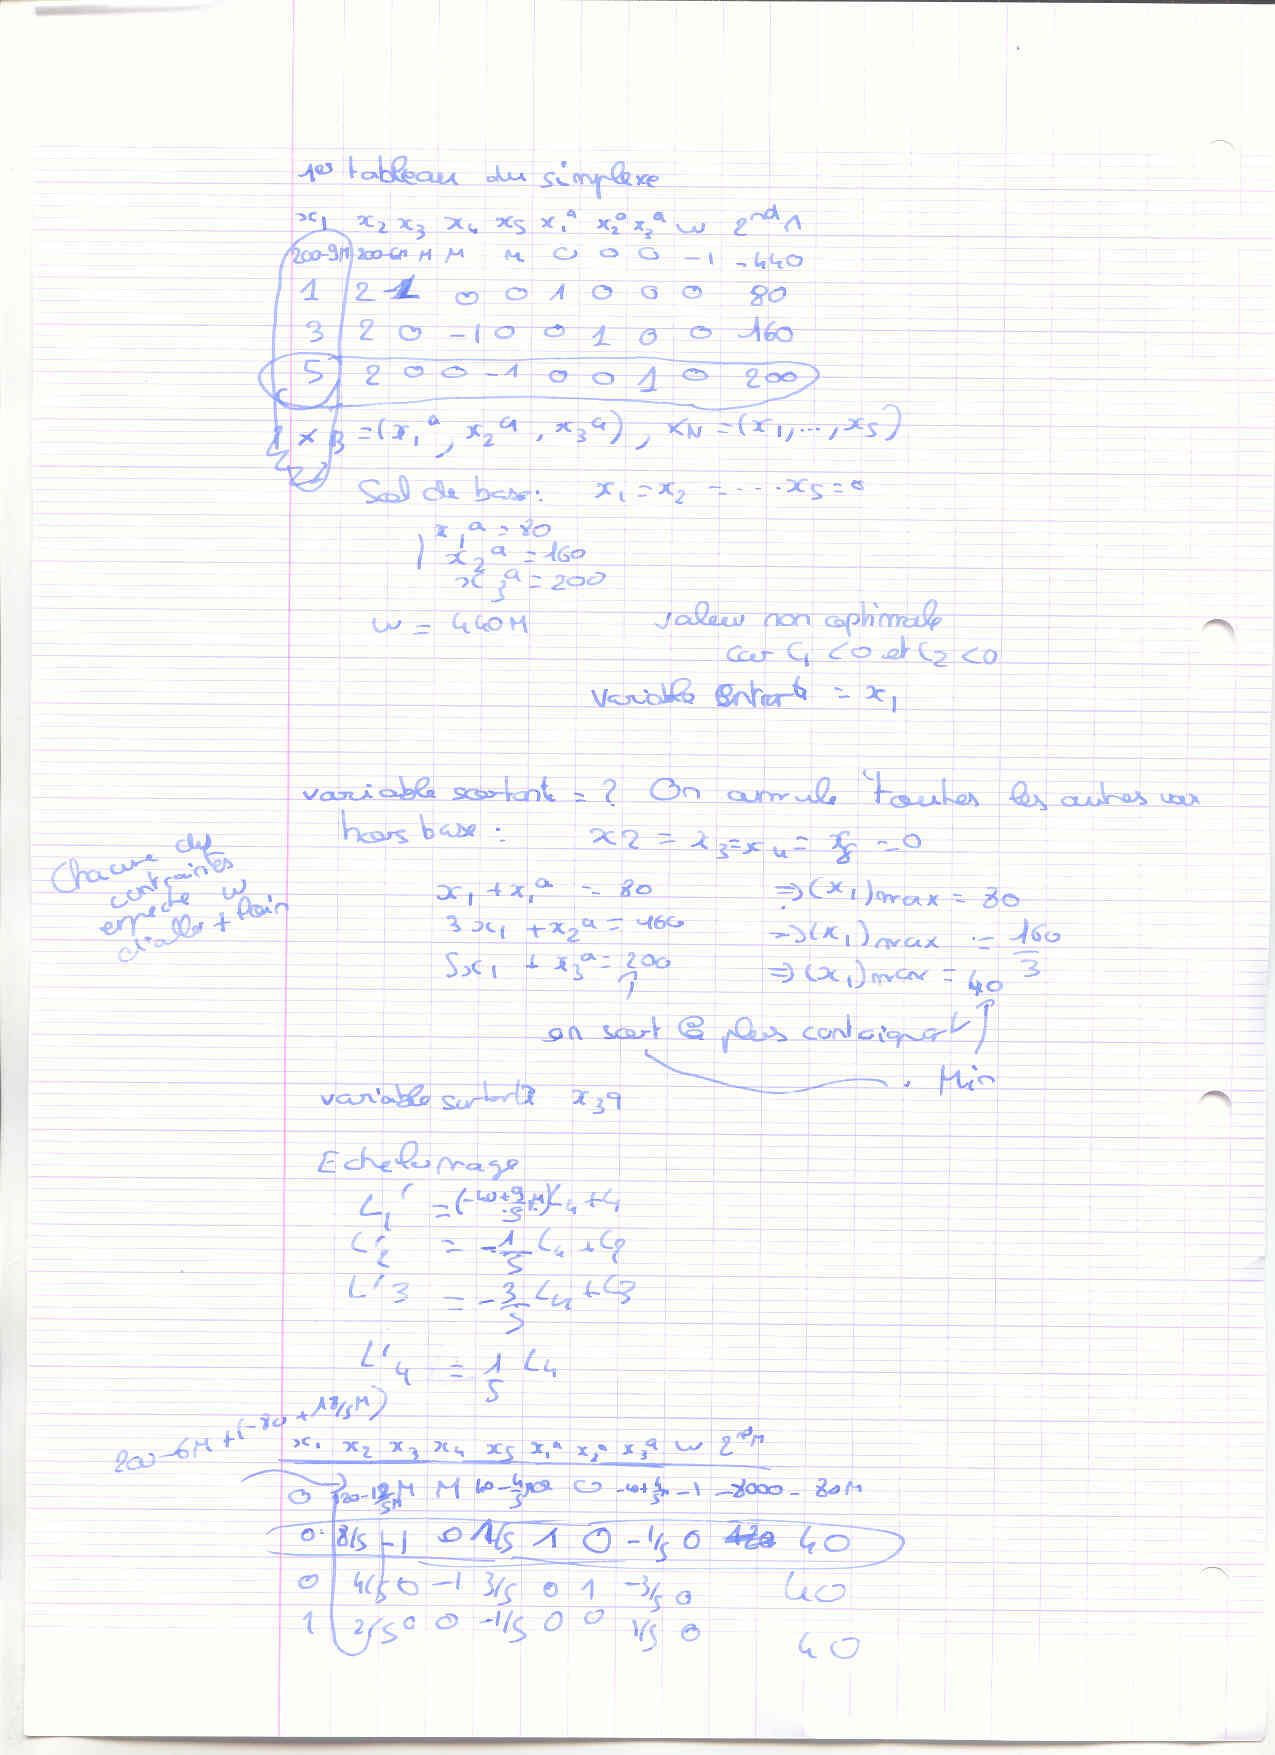 1er tableau du simplexe
x1 x2 x3 x4 x5 x1^a x2^a x3^a w 2nd M
200-9M 200-6M M M M 0 0 0 -1 -440
1 2 -1 0 0 1 0 0 0 80
3 2 0 -1 0 0 1 0 0 160
5 2 0 0 -1 0 0 1 0 200
x_B = (x1^a, x2^a, x3^a), x_N = (x1, ..., x5)
Sol de base: x1 = x2 = .... x5 = 0
x1^a = 80
x2^a = 160
x3^a = 200
w = 440M valeur non optimale
car C1 < 0 et C2 < 0
variable entrante = x1
variable sortante = ? On annule toutes les autres var
hors base : x2 = x3 = x4 = x5 = 0
Chacune des
contraintes
empêche w
d'aller + loin
x1 + x1^a = 80 => (x1)max = 80
3x1 + x2^a = 160 => (x1)max = 160/3
5x1 + x3^a = 200 => (x1)max = 40
on sort le plus contraignant
Min
variable sortante x3a
Echelonnage
L1' = (-40+9/5M)L4 + L1
L'2 = -1/5 L4 + L2
L'3 = -3/5 L4 + L3
L'4 = 1/5 L4
200-6M+(-80+18/5M)
x1 x2 x3 x4 x5 x1^a x2^a x3^a w 2nd M
0 120-12/5M M M 40-4/5M 0 0 -40+9/5M -1 -8000-80M
0 8/5 -1 0 1/5 1 0 -1/5 0 40
0 4/5 0 -1 3/5 0 1 -3/5 0 40
1 2/5 0 0 -1/5 0 0 1/5 0 40